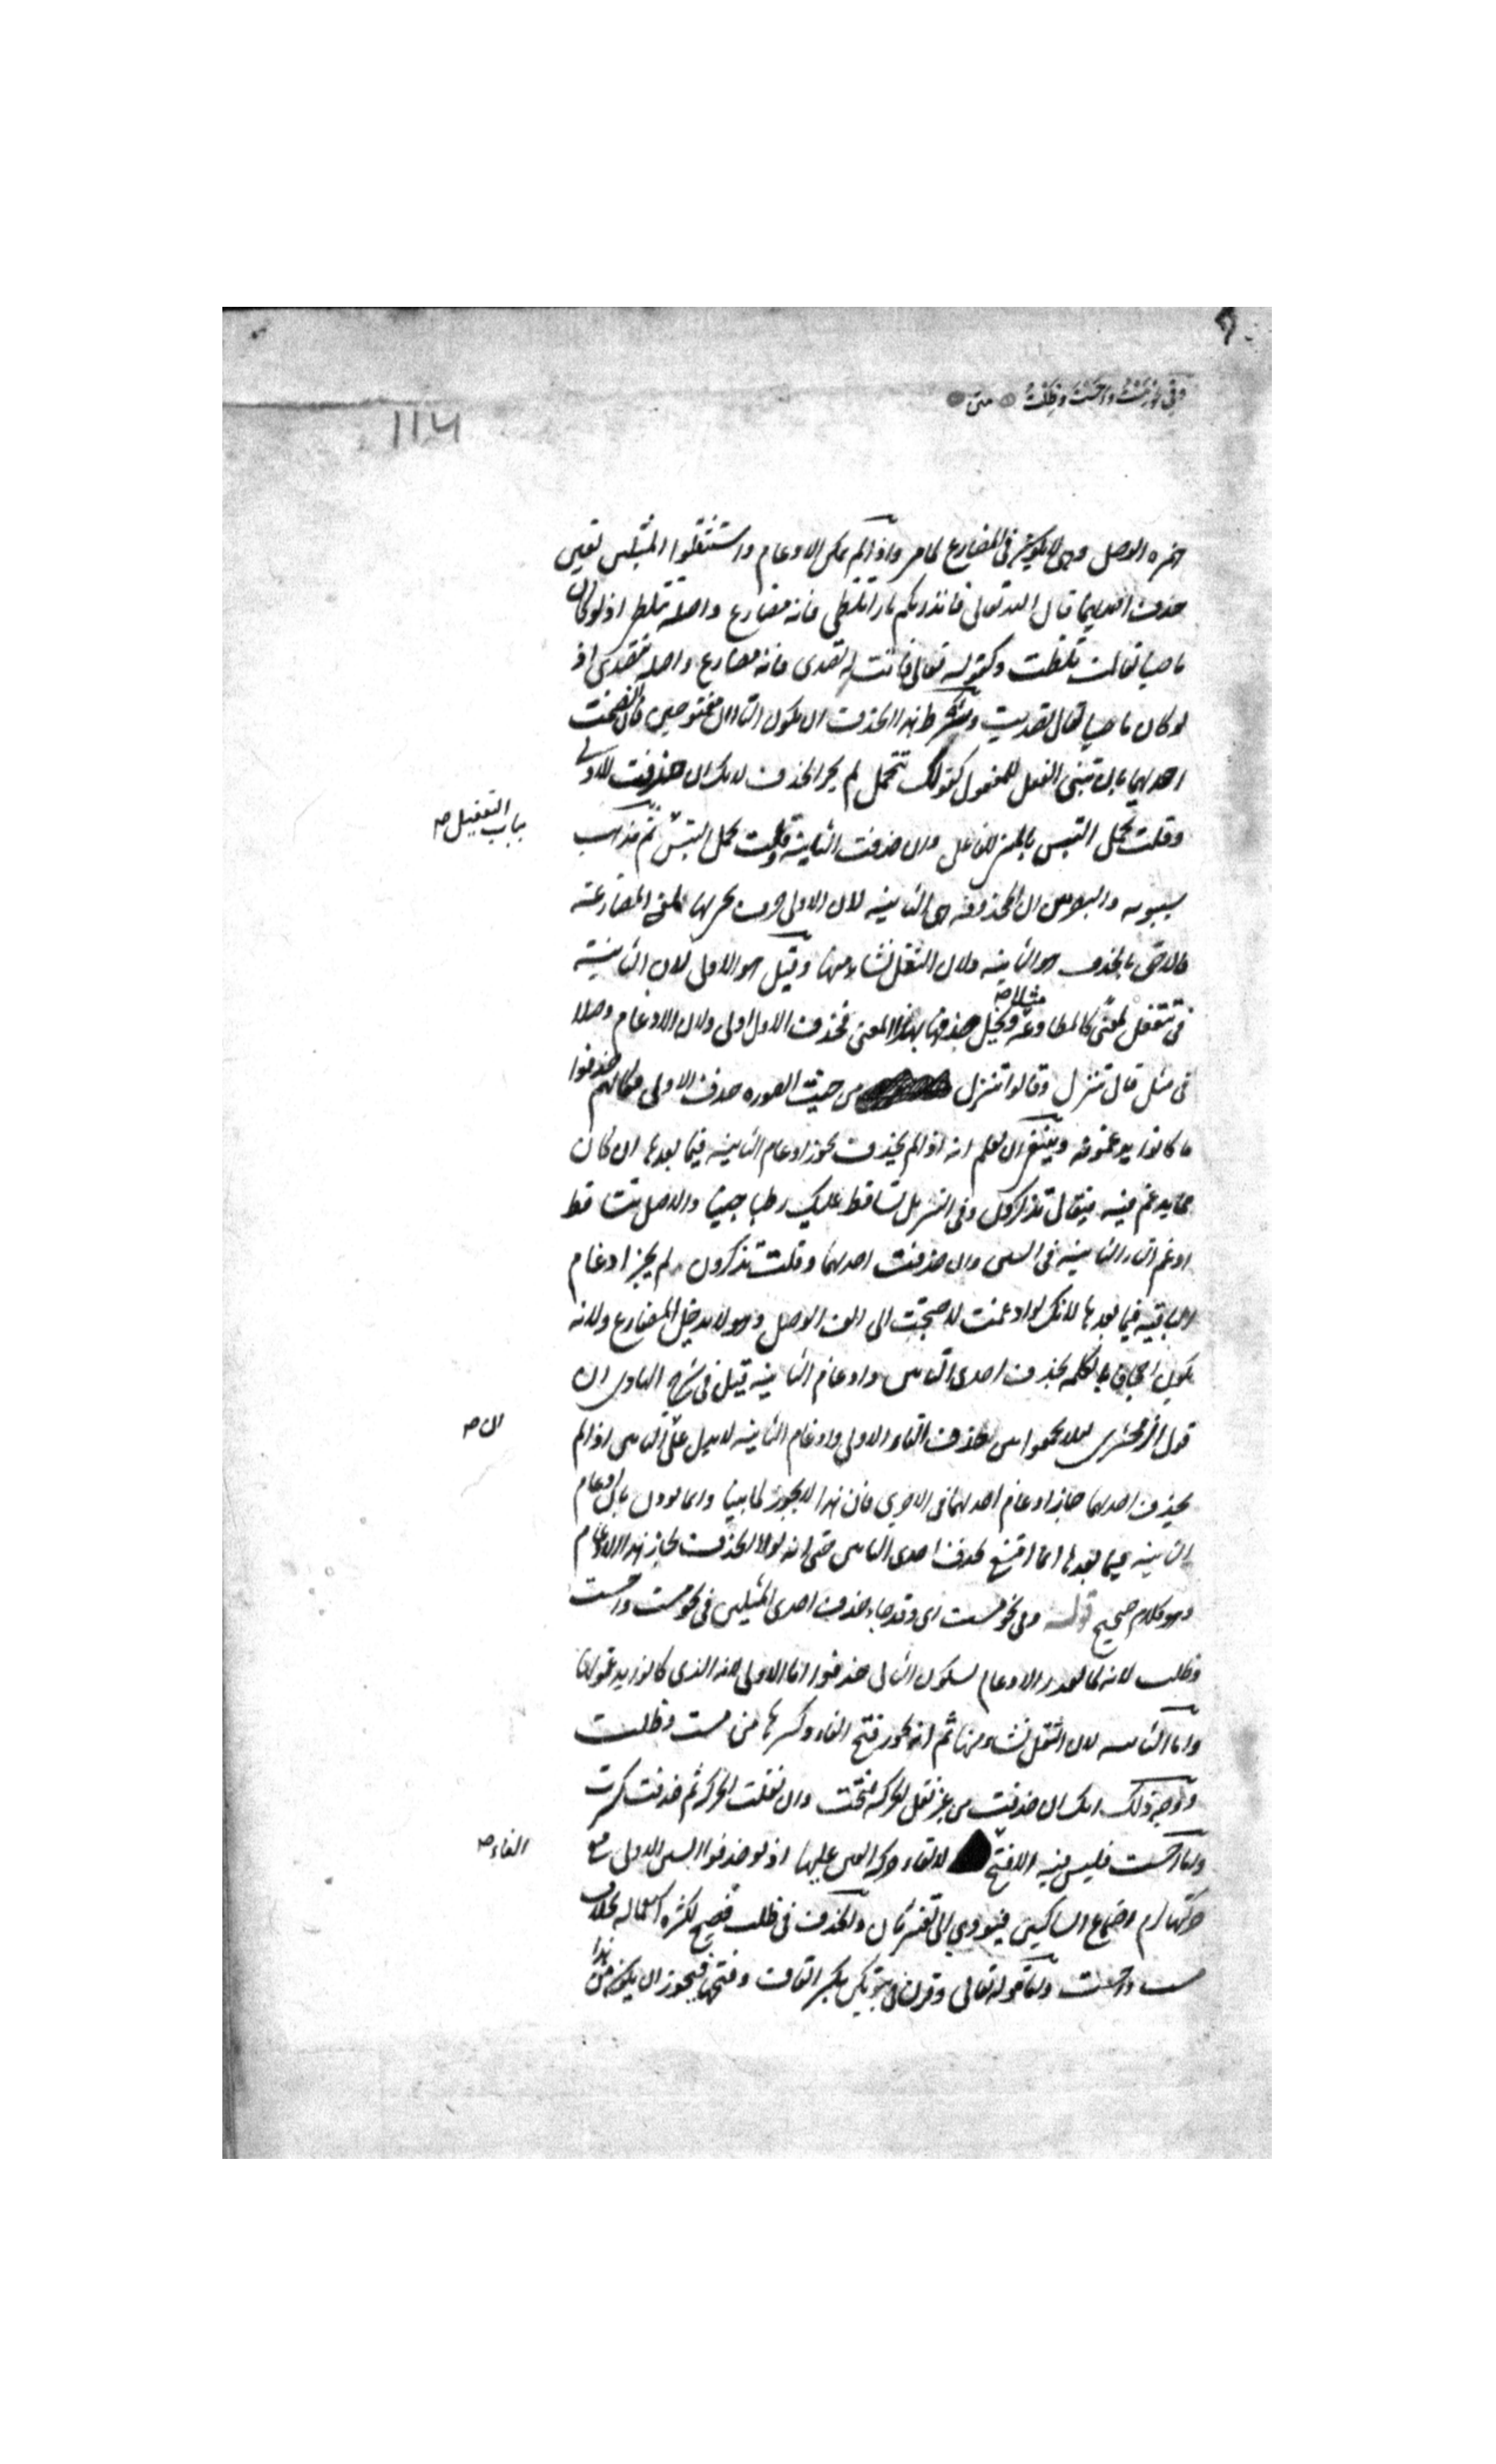 وفي نحو مَسْتُ وأَحَسْتُ وظَلْتُ متن
114
همزة الوصل وهي لا يكون في المضارع لما مر واذا لم يمكن الادغام واستثقلوا المثلين تعين
حذف احديهما قال الله تعالى فانذرتكم نارا تلظى فانه مضارع واصله تتلظى اذ لو كان
ماضيا لقال تلظت وكقوله تعالى فانت له تصدى فانه مضارع واصله تتصدى اذ
لو كان ماضيا لقال تصديت وشرط هذا الحذف ان يكون التاآن مفتوحتين فان انضمت
احديهما بان تبنى الفعل للمفعول كقولك تتحمل لم يجز الحذف لانك ان حذفت الاولى
وقلت تحمل التبس بالمبني للفاعل وان حذفت الثانية وقلت تحمل التبس ثم مذهب
بباب التفعيل صح
سيبويه والبصريين ان المحذوفة هي الثانية لان الاولى حرف يجربها لمعنى المضارعة
فالاحق بالحذف هو الثانية ولان الثقل نشاء منها وقيل هو الاولى لان الثانية
في تتفعل لمعنى كالمطاوعة مثلا صح ويخل حذفها بهذا المعنى فحذف الاول اولى ولان الادغام وصلا
في مثل قال تنزل وقالوا تنزل من حيث الصورة حذف الاولى فكانهم حذفوا
ما كانوا يدغمونه وينبغي ان يعلم انه اذا لم يحذف يجوز ادغام الثانية فيما بعدها ان كان
مما يدغم فيه فيقال تذكرون وفي التنزيل تساقط عليك رطبا جنيا والاصل تتساقط
ادغم التاء الثانية في السين وان حذفت احديهما وقلت تذكرون لم يجز ادغام
الباقية فيما بعدها لانك لو ادغمت لاحتجت الى الف الوصل وهو لا يدخل المضارع ولانه
يكون اجحافا بالكلمة بحذف احدى التائين وادغام الثانية قيل في شرح الهادي ان
قول الزمخشري لئلا يجمعوا بين حذف التاء الاولى وادغام الثانية لا يدل على ان التائين اذا لم
ان صح
يحذف احديهما جاز ادغام احديهما في الاخرى فان هذا لا يجوز لما بينا وانما يؤذن بان ادغام
الثانية فيما بعدها انما امتنع لحذف احدى التائين حتى انه لولا الحذف لجاز هذا الادغام
وهو كلام صحيح قوله وفي نحو مست اي وقد جاء حذف احدى المثلين في نحو مست واحست
وظلت لانه لما تعذر الادغام لسكون الثاني حذفوا اما الاولى لانه الذي كانوا يدغمونه
واما الثانية لان الثقل نشاء منها ثم انه يجوز فتح الفاء وكسرها من مست وظلت
ووجه ذلك انك ان حذفت من غير نقل الحركة فتحت وان نقلت الحركة ثم حذفت كسرت
واما احست فليس فيه الا فتح الفاء صح لالقاء حركة العين عليها اذ لو حذفوا السين الاولى مع
حركتها لزم اجتماع الساكنين فيؤدي الى تغيير ثان والحذف في ظلت فصيح لكثرة استعماله بخلاف
مست واحست واما قوله تعالى وقرن في بيوتكن بكسر القاف وفتحها فيجوز ان يكون من هذا